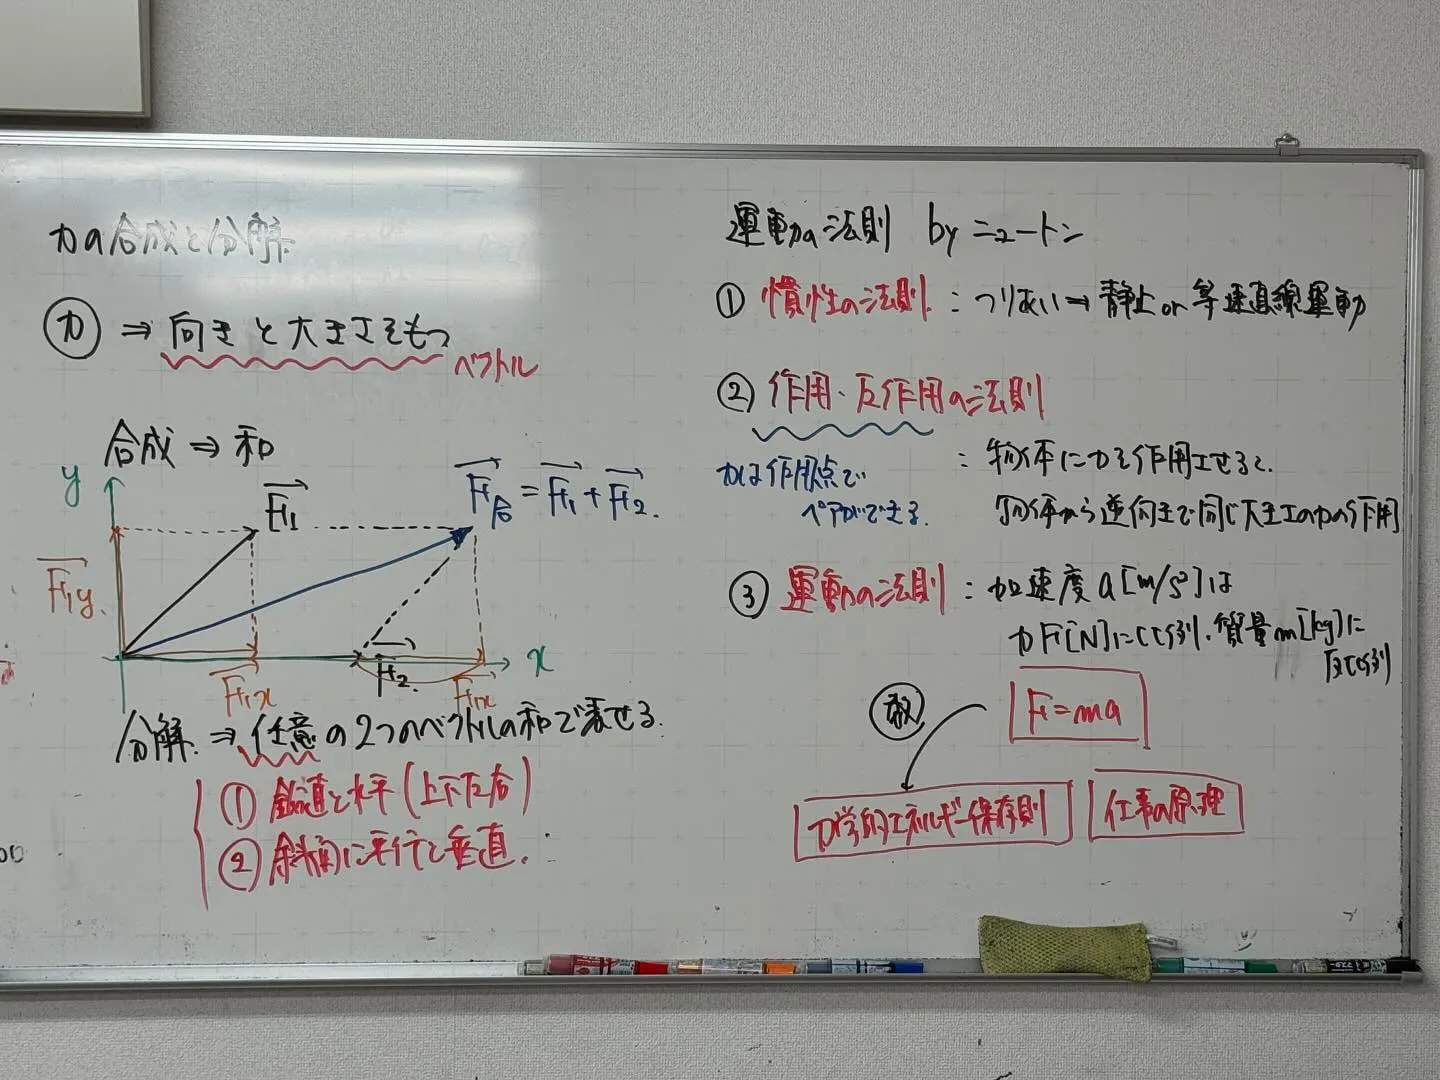 力の合成と分解
力 ⇒ 向きと大きさをもつ
ベクトル
合成 ⇒ 和
y
F1
F合 = F1 + F2.
F1y.
x
F1x
F2.
F1x
分解. ⇒ 任意の2つのベクトルの和で表せる.
① 鉛直と水平(上下左右)
② 斜面に平行と垂直.
運動の法則 by ニュートン
① 慣性の法則 : つりあい → 静止 or 等速直線運動
② 作用・反作用の法則
力は作用点で
ペアができる.
: 物体に力を作用させると、
物体から逆向きで同じ大きさの力が作用
③ 運動の法則 : 加速度 a[m/s²]は
力 F[N]に比例. 質量 m[kg]に
反比例
F=ma
力学的エネルギー保存則
仕事の原理